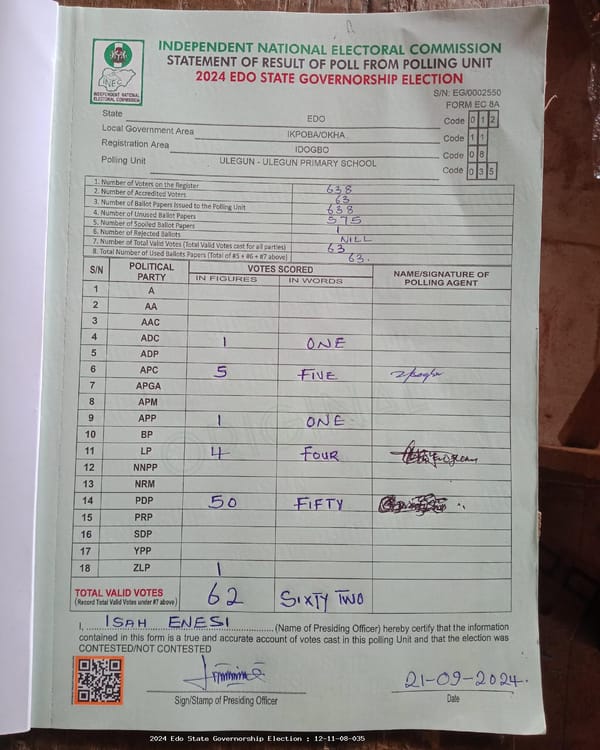 INDEPENDENT NATIONAL ELECTORAL COMMISSION
STATEMENT OF RESULT OF POLL FROM POLLING UNIT
2024 EDO STATE GOVERNORSHIP ELECTION
INEC
INDEPENDENT NATIONAL ELECTORAL COMMISSION
S/N: EG/0002550
FORM EC 8A
State EDO Code 0 1 2
Local Government Area IKPOBA/OKHA Code 1 1
Registration Area IDOGBO Code 0 8
Polling Unit ULEGUN - ULEGUN PRIMARY SCHOOL Code 0 3 5
1. Number of Voters on the Register 638
2. Number of Accredited Voters 63
3. Number of Ballot Papers Issued to the Polling Unit 638
4. Number of Unused Ballot Papers 575
5. Number of Spoiled Ballot Papers 1
6. Number of Rejected Ballots NILL
7. Number of Total Valid Votes (Total Valid Votes cast for all parties) 63
8. Total Number of Used Ballots Papers (Total of #5 + #6 + #7 above) 63.
S/N POLITICAL PARTY VOTES SCORED NAME/SIGNATURE OF POLLING AGENT
IN FIGURES IN WORDS
1 A
2 AA
3 AAC
4 ADC 1 ONE
5 ADP
6 APC 5 FIVE
7 APGA
8 APM
9 APP 1 ONE
10 BP
11 LP 4 FOUR
12 NNPP
13 NRM
14 PDP 50 FIFTY
15 PRP
16 SDP
17 YPP
18 ZLP 1
TOTAL VALID VOTES 62 SIXTY TWO
(Record Total Valid Votes under #7 above)
I, ISAH ENESI (Name of Presiding Officer) hereby certify that the information
contained in this form is a true and accurate account of votes cast in this polling Unit and that the election was
CONTESTED/NOT CONTESTED
21-09-2024.
Sign/Stamp of Presiding Officer Date
2024 Edo State Governorship Election : 12-11-08-035